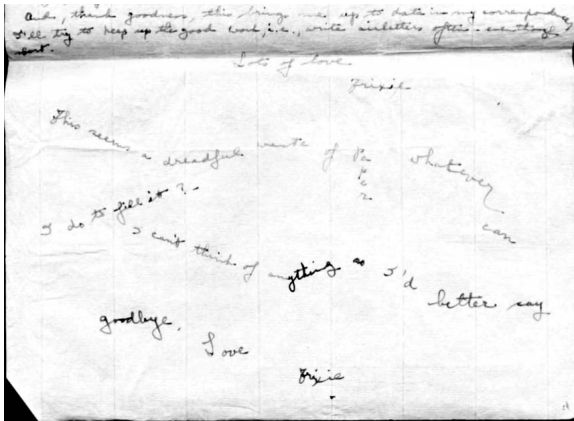 And, thank goodness, this brings me up to date in my correspondence,
I'll try to keep up the good work, i.e., write airletters often - even though
short.
Lots of love
Trixie
This seems a dreadful waste of Paper whatever can
I do to fill it? -
I can't think of anything so I'd better say
goodbye.
Love
Trixie